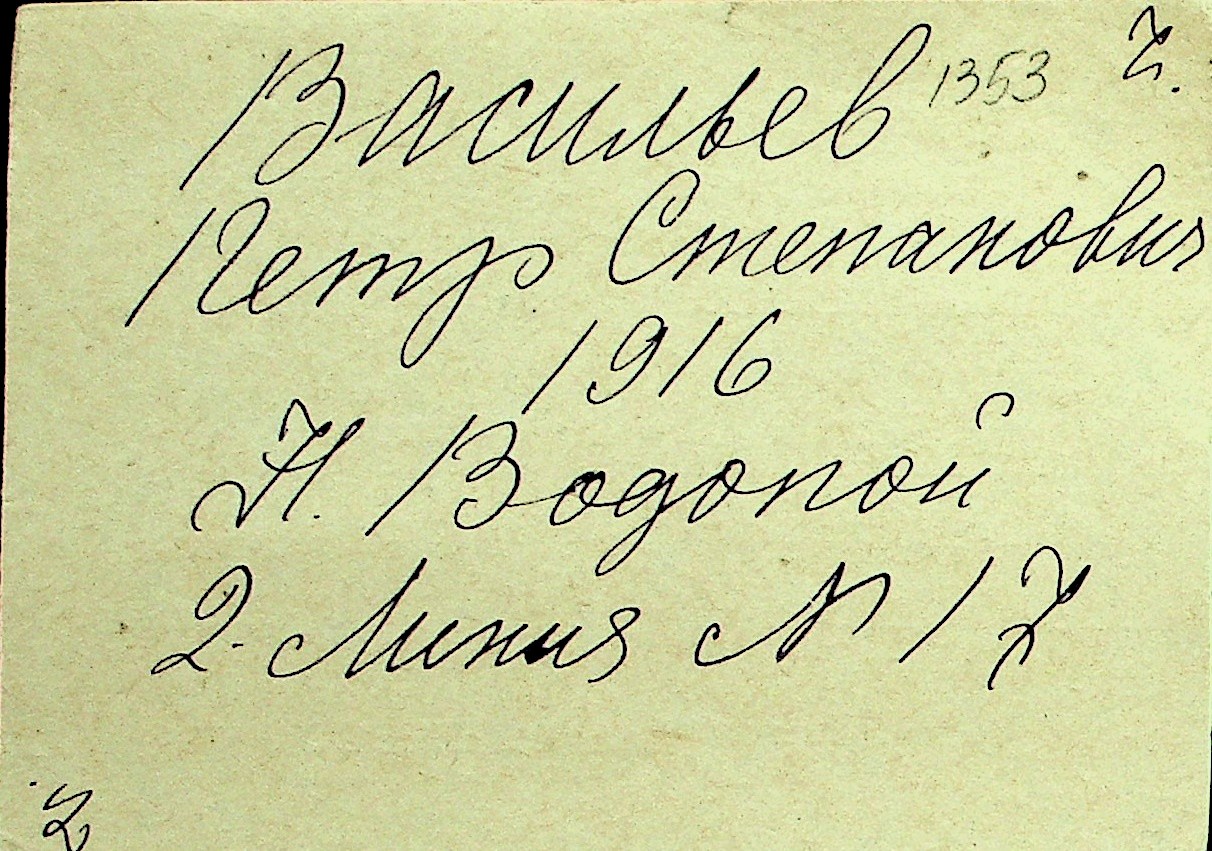 Васильев 1353 ч.
Петр Степанович
1916
Н. Водопой
2. Линия N 17